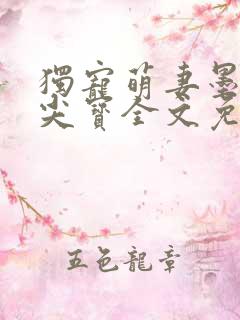 獨寵萌妻墨
尖寶全文免
五色龍章